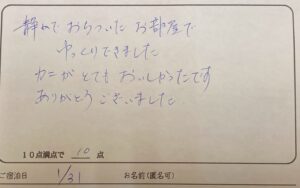 静かで おちついた お部屋で
ゆっくりできました
カニが とても おいしかったです
ありがとう ございました
10点満点で 10 点
ご宿泊日 1/31 お名前(匿名可)